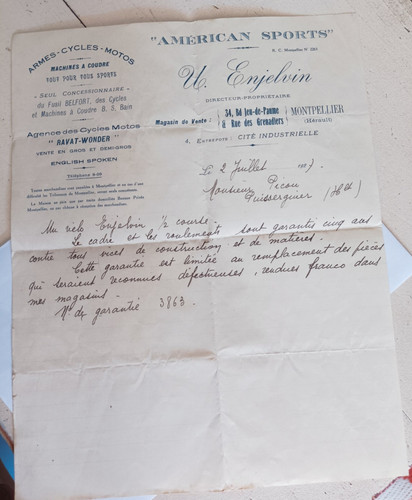 "AMÉRICAN SPORTS"
ARMES-CYCLES-MOTOS
MACHINES A COUDRE
TOUT POUR TOUS SPORTS
SEUL CONCESSIONNAIRE
du Fusil BELFORT, des Cycles
et Machines à Coudre B. S. Rain
Agence des Cycles Motos
"RAVAT-WONDER"
VENTE EN GROS ET DEMI-GROS
ENGLISH SPOKEN
TÉLÉPHONE
R. C. Montpellier N°
U. Enjelvin
DIRECTEUR-PROPRIÉTAIRE
Magasin de Vente : 34, Bd Jeu-de-Paume & Rue des Grenadiers MONTPELLIER (Hérault)
4, ENTREPOTS : CITÉ INDUSTRIELLE
Le 2 Juillet
Monsieur Picou
Puisserguier (Hlt)
Un vélo Enjelvin 1/2 course.
Le cadre et les roulements sont garantis cinq ans
contre tous vices de construction et de matières.
Cette garantie est limitée au remplacement des pièces
qui seraient reconnues défectueuses, rendues franco dans
mes magasins.
N° de garantie 3863